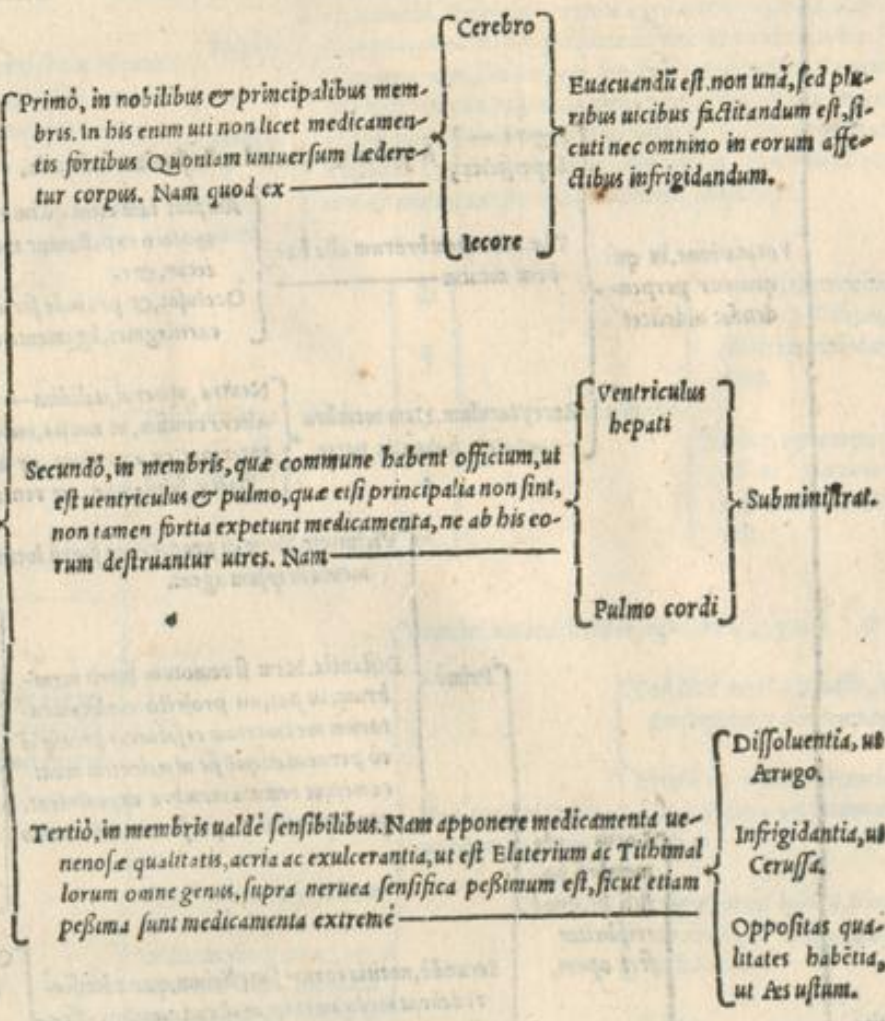 Primò, in nobilibus & principalibus mem-
bris. In his enim uti non licet medicamen-
tis fortibus Quoniam uniuersum lædere-
tur corpus. Nam quod ex
Cerebro
Iecore
Euacuandũ est. non unâ, sed plu-
ribus uicibus factitandum est, si-
cuti nec omnino in eorum affe-
ctibus infrigidandum.
Secundò, in membris, quæ commune habent officium, ut
est uentriculus & pulmo, quæ etsi principalia non sint,
non tamen fortia expetunt medicamenta, ne ab his eo-
rum destruantur uires. Nam
Ventriculus
hepati
Pulmo cordi
Subministrat.
Tertiò, in membris ualdè sensibilibus. Nam apponere medicamenta ue-
nenosæ qualitatis, acria ac exulcerantia, ut est Elaterium ac Tithimal
lorum omne genus, supra neruea sensifica peßimum est, sicut etiam
peßima sunt medicamenta extremè
Dissoluentia, ut
Ærugo.
Infrigidantia, ut
Cerussa.
Oppositas qua-
litates habẽtia,
ut Æs ustum.